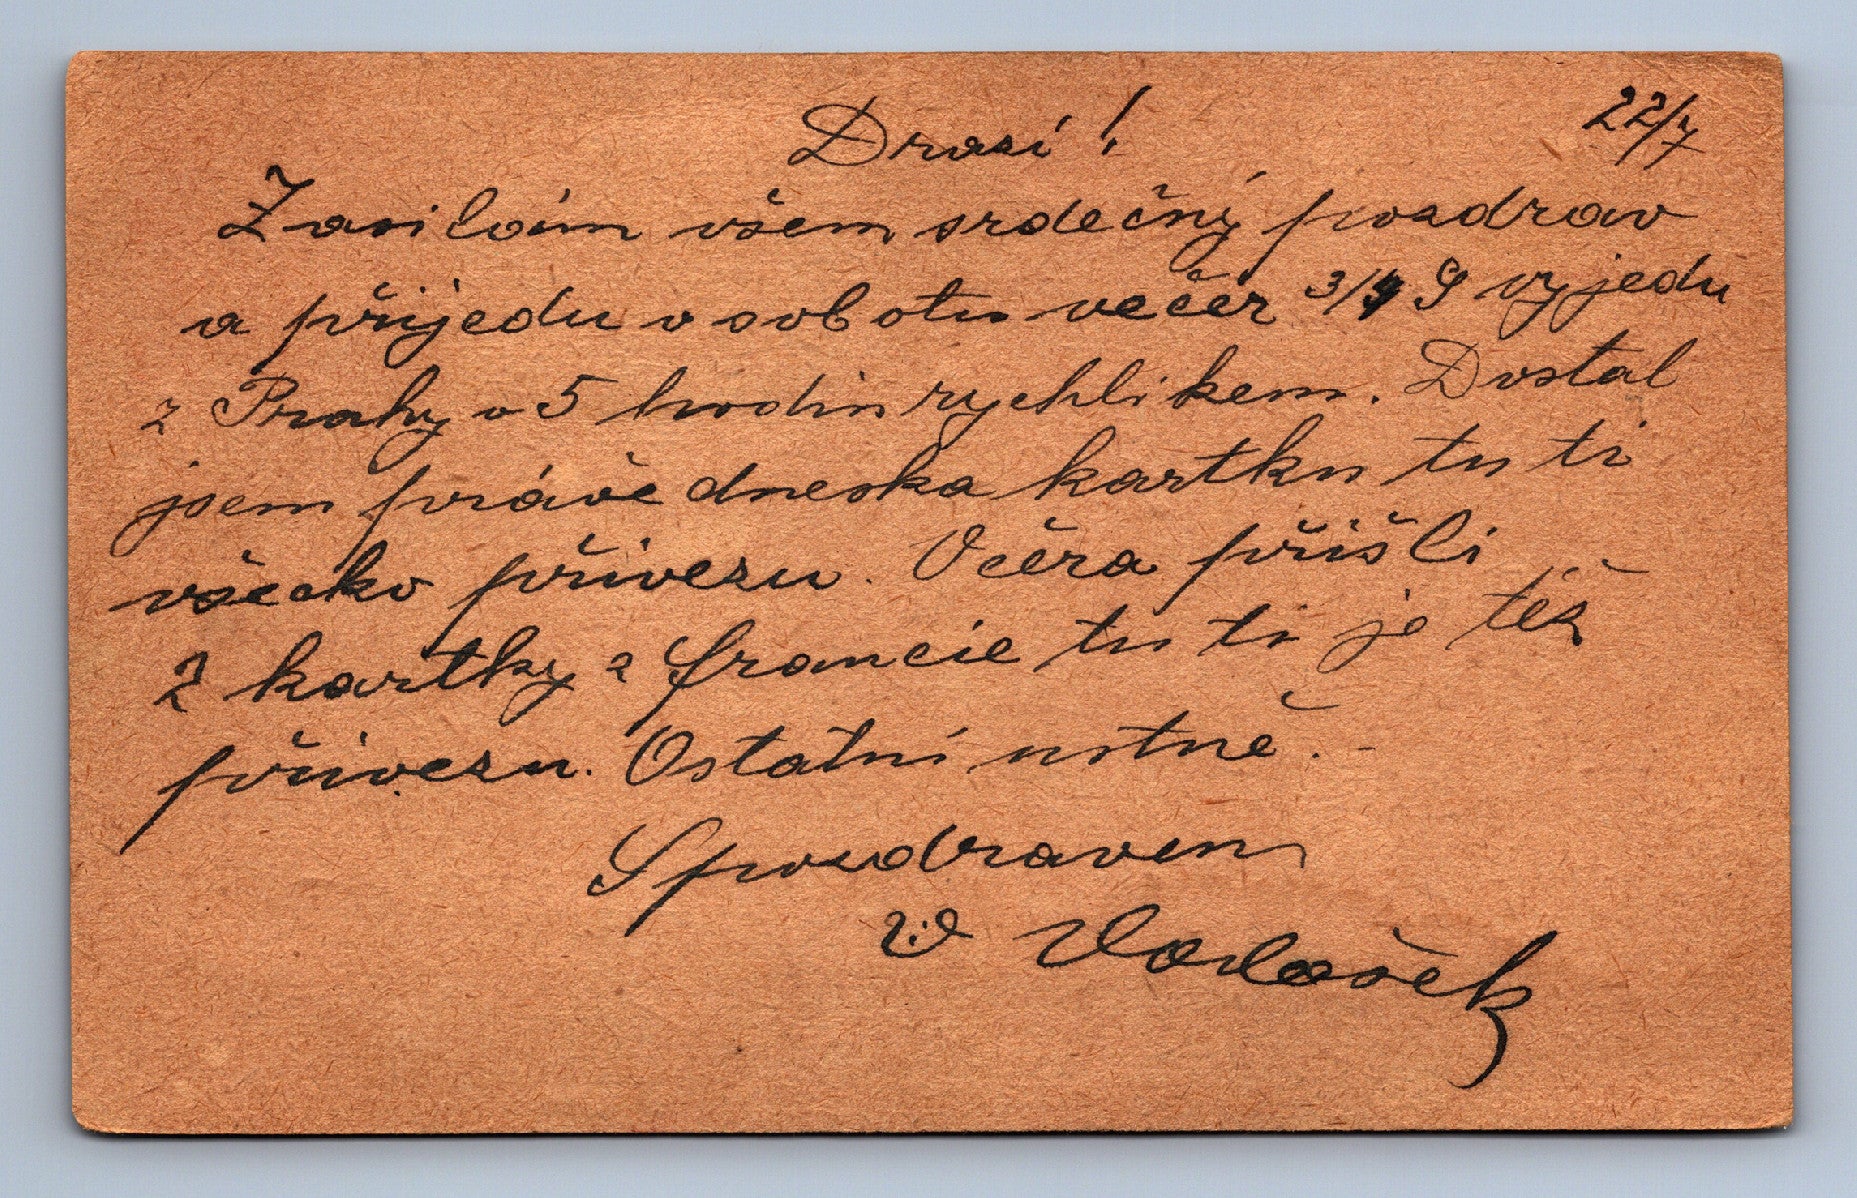 22/7
Drasí!
Zasilám všem srdečný pozdrav
a přijedu v sobotu večer 3/9 vyjedu
z Prahy v 5 hodin rychlikem. Dostal
jsem právě dneska kartku tu ti
všecko přivezu. Včera přišli
2 kartky z francie tu ti je též
přivezu. Ostatní ustně. -
S pozdravem